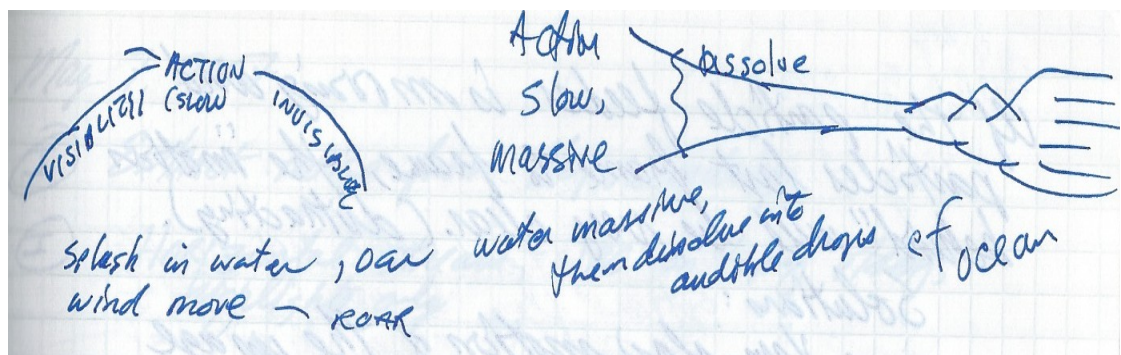 VISIBILITY
ACTION
(SLOW)
INVISIBILITY
Action
slow,
massive
dissolve
splash in water, oar
wind move – ROAR
water massive,
then dissolve into
audible drops
cf ocean